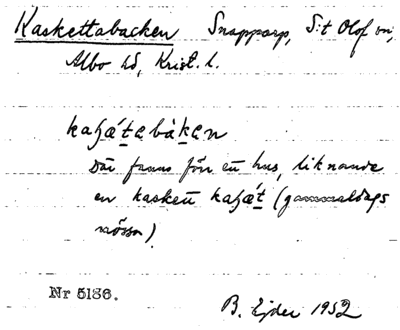 Kaskettabacken Snapparp, S:t Olof sn,
Albo hd, Krist. l.
kaʂǽtabàkɛn
Där fanns förr ett hus, liknande
en kaskett kaʂǽt (gammaldags
mössa)
Nr 5186. B. Ejder 1952